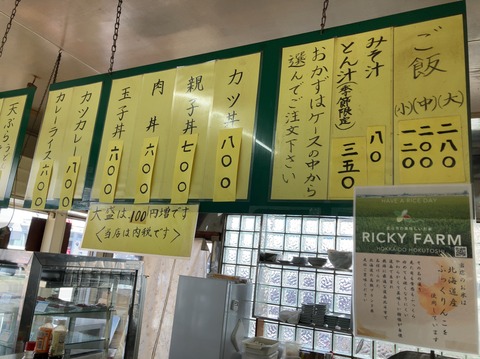 ご飯
(大) 二八〇
(中) 二〇〇
(小) 一二〇
みそ汁 八〇
とん汁(季節限定) 三五〇
おかずはケースの中から
選んでご注文下さい
カツ丼 八〇〇
親子丼 七〇〇
肉丼 六〇〇
玉子丼 六〇〇
カツカレー 八〇〇
カレーライス 六〇〇
天ぷらうどん
大盛は100円増です
<当店は内税です>
HAVE A RICE DAY
RICKY FARM
HOKKAIDO HOKUTOSHI
北海道産
ふっくりんこを
使用しています